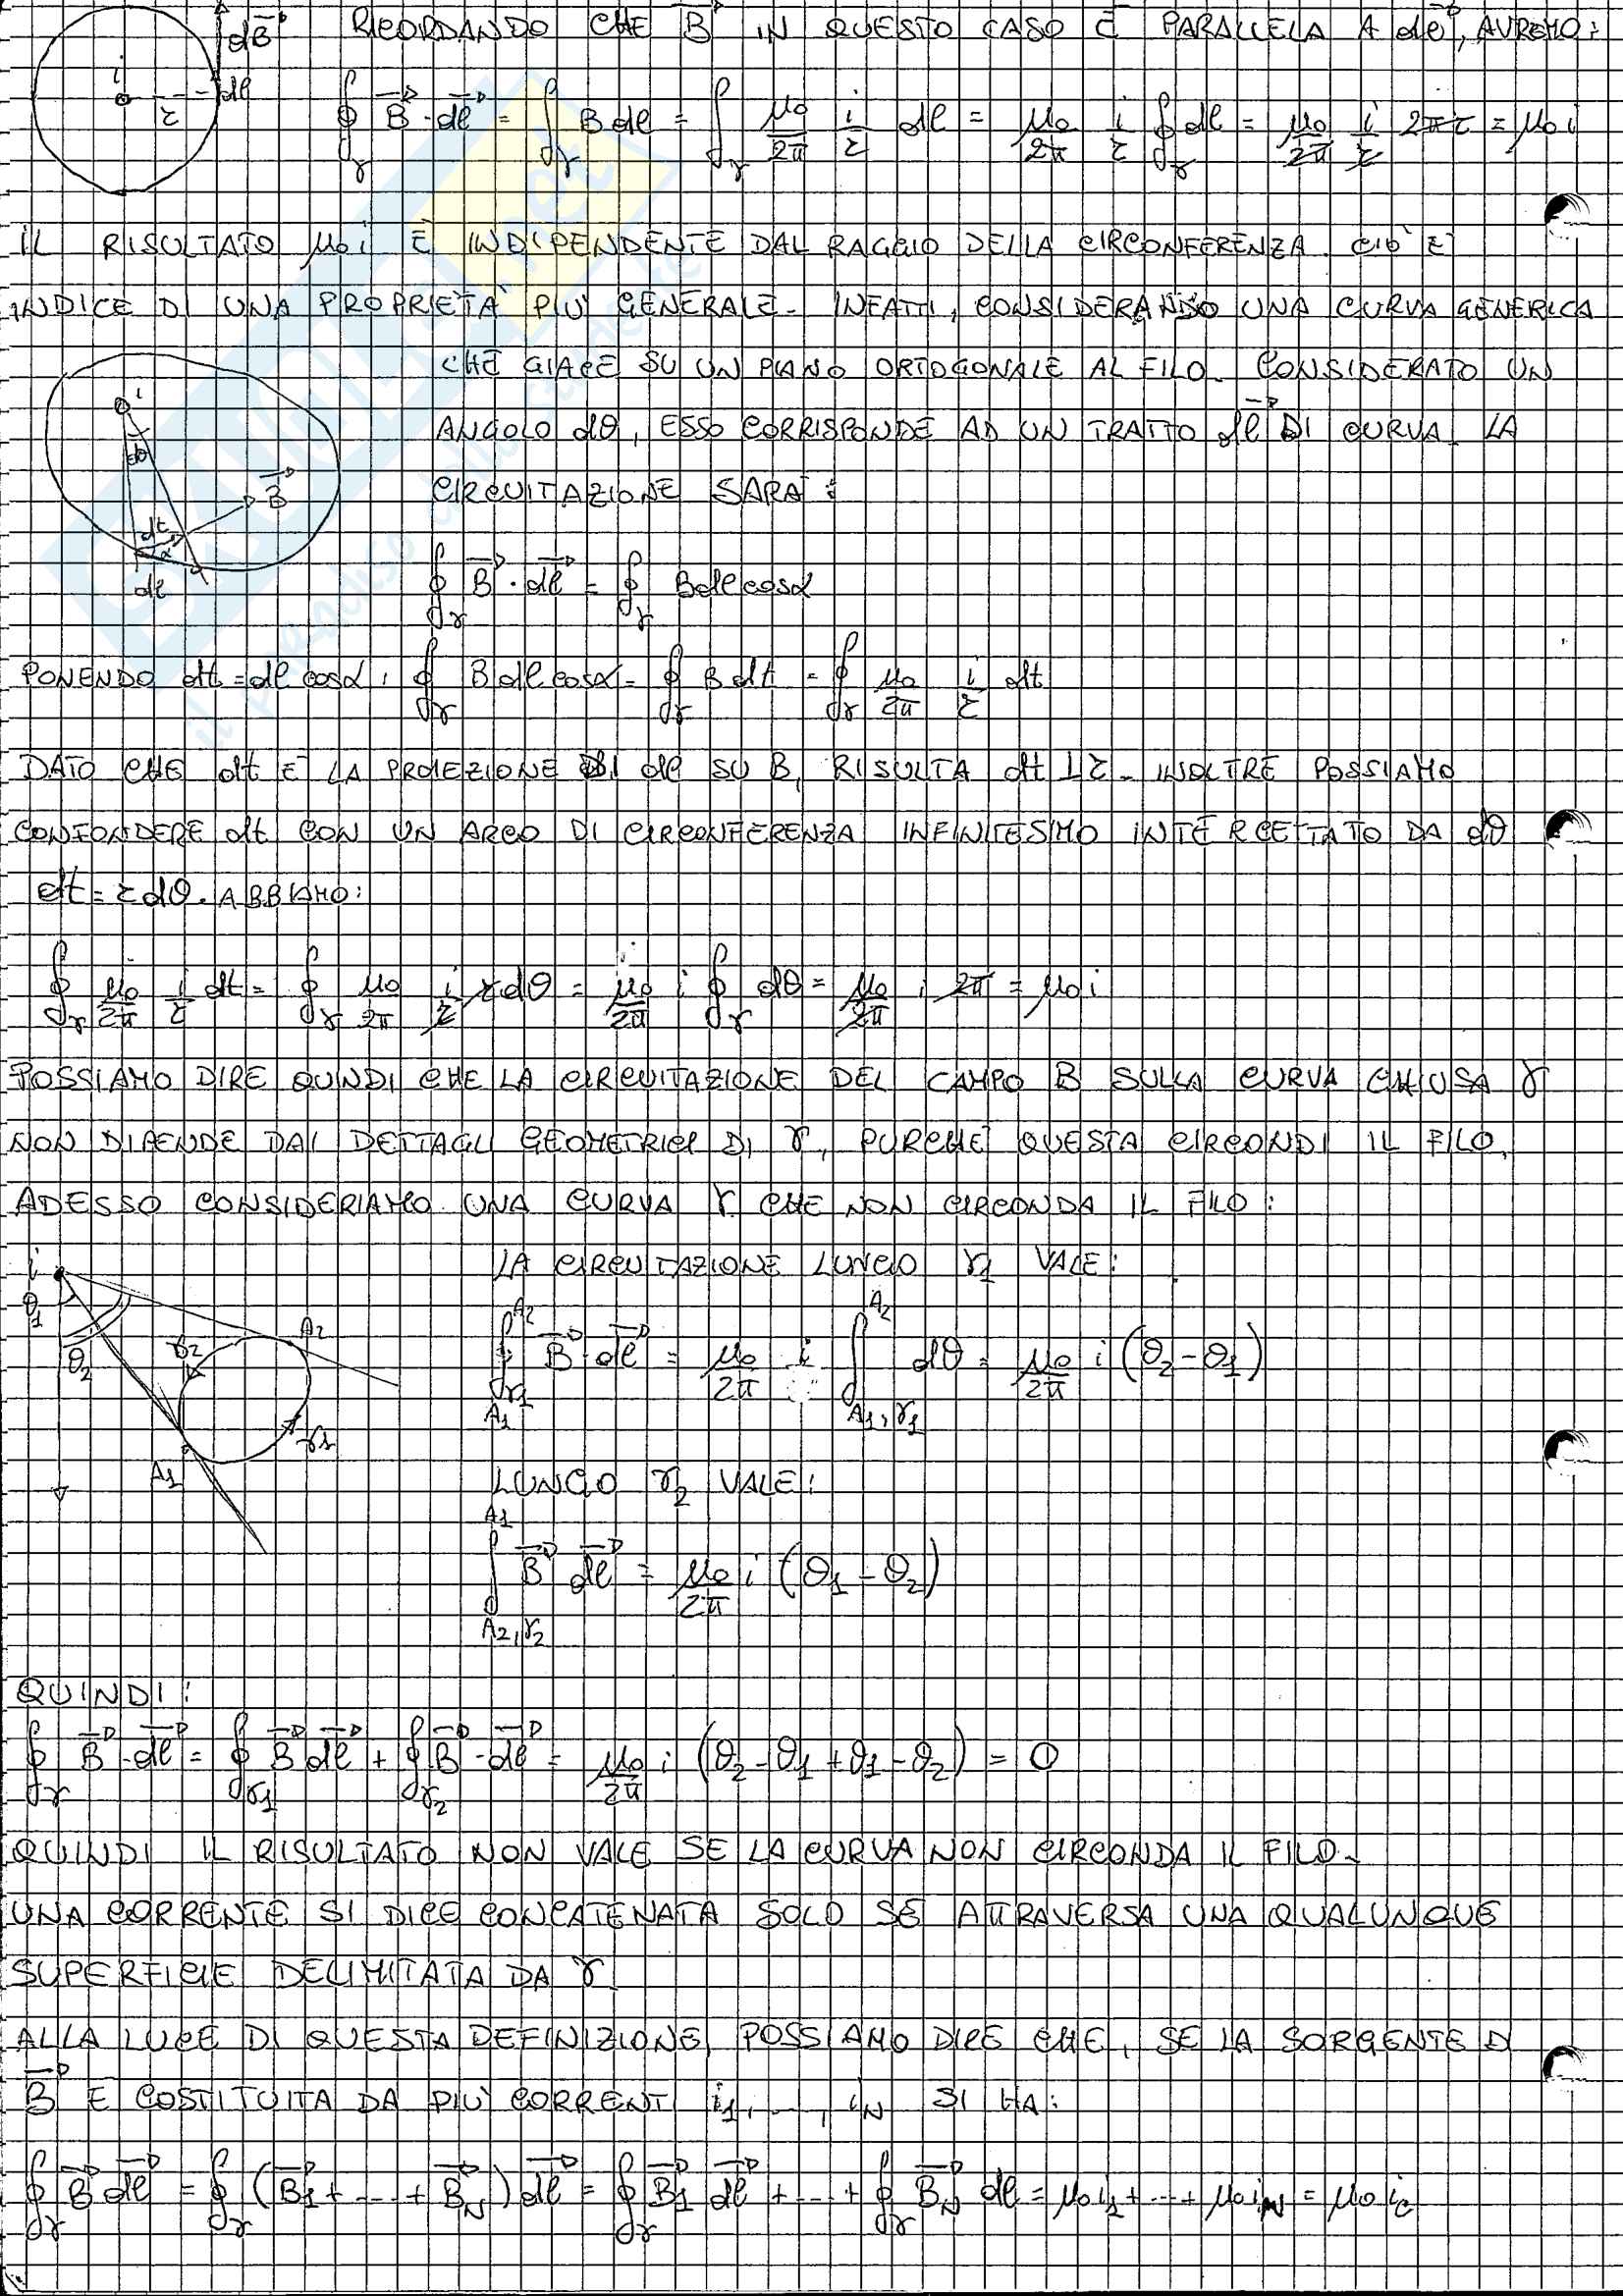 dB⃗ RICORDANDO CHE B⃗ IN QUESTO CASO È PARALLELA A dl⃗, AVREMO:
i r dl ∮γ B⃗·dl⃗ = ∫γ B dl = ∫γ μ0/2π i/r dl = μ0/2π i/r ∮γ dl = μ0/2π i/r 2πr = μ0 i
IL RISULTATO μ0 i È INDIPENDENTE DAL RAGGIO DELLA CIRCONFERENZA. CIÒ È
INDICE DI UNA PROPRIETÀ PIÙ GENERALE. INFATTI, CONSIDERANDO UNA CURVA GENERICA
CHE GIACE SU UN PIANO ORTOGONALE AL FILO. CONSIDERATO UN
i
ANGOLO dθ, ESSO CORRISPONDE AD UN TRATTO dl⃗ DI CURVA. LA
dθ
CIRCUITAZIONE SARÀ:
B⃗
dt
α
dl
∮γ B⃗·dl⃗ = ∮γ B dl cosα
PONENDO dt = dl cosα, ∮γ B dl cosα = ∮γ B dt = ∮γ μ0/2π i/r dt
DATO CHE dt È LA PROIEZIONE DI dl SU B, RISULTA dt ⊥ r. INOLTRE POSSIAMO
CONFONDERE dt CON UN ARCO DI CIRCONFERENZA INFINITESIMO INTERCETTATO DA dθ
dt = r dθ. ABBIAMO:
∮γ μ0/2π i/r dt = ∮γ μ0/2π i/r r dθ = μ0/2π i ∮γ dθ = μ0/2π i 2π = μ0 i
POSSIAMO DIRE QUINDI CHE LA CIRCUITAZIONE DEL CAMPO B SULLA CURVA CHIUSA γ
NON DIPENDE DAI DETTAGLI GEOMETRICI DI γ, PURCHÈ QUESTA CIRCONDI IL FILO.
ADESSO CONSIDERIAMO UNA CURVA γ CHE NON CIRCONDA IL FILO:
i LA CIRCUITAZIONE LUNGO γ1 VALE:
θ1 θ2 γ2 A2 γ1 A1
∫A1,γ1^A2 B⃗·dl⃗ = μ0/2π i ∫A1,γ1^A2 dθ = μ0/2π i (θ2-θ1)
LUNGO γ2 VALE:
∫A2,γ2^A1 B⃗ dl⃗ = μ0/2π i (θ1-θ2)
QUINDI:
∮γ B⃗·dl⃗ = ∮γ1 B⃗ dl⃗ + ∮γ2 B⃗·dl⃗ = μ0/2π i (θ2-θ1+θ1-θ2) = 0
QUINDI IL RISULTATO NON VALE SE LA CURVA NON CIRCONDA IL FILO.
UNA CORRENTE SI DICE CONCATENATA SOLO SE ATTRAVERSA UNA QUALUNQUE
SUPERFICIE DELIMITATA DA γ.
ALLA LUCE DI QUESTA DEFINIZIONE, POSSIAMO DIRE CHE, SE LA SORGENTE DI
B⃗ È COSTITUITA DA PIÙ CORRENTI i1, ..., iN SI HA:
∮γ B⃗ dl⃗ = ∮γ (B⃗1+...+B⃗N) dl⃗ = ∮γ B⃗1 dl⃗ +...+ ∮γ B⃗N dl = μ0 i1 +...+ μ0 iN = μ0 ic